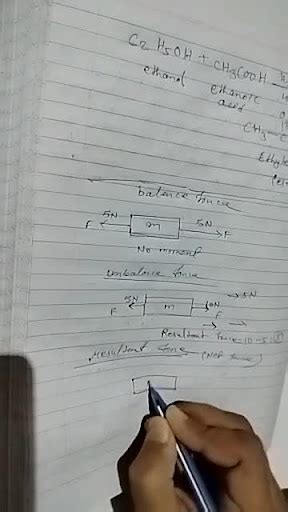 C2 H5OH + CH3COOH
ethanol ethanoic
acid
CH3-C
Ethyl
balance force
5N 5N
F m F
No moment
unbalance force
5N m 10N → 5N
F F
Resultant force = 10 - 5 = 5
resultant force (Net force)